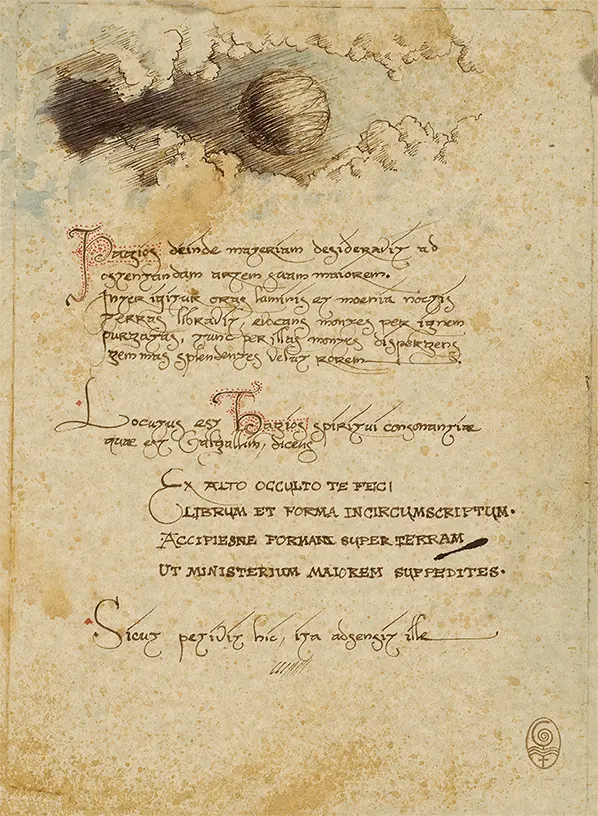 Hagios deinde materiam desideravit ad
ostentandam artem suam maiorem.
Inter igitur oras luminis et moenia noctis
terras libravit, evocans montes per ignem
purgatas, tunc per illas montes dispergens
gemmas splendentes velut rorem
Locutus est Hagios spiritui consonantiae
quae est, dicens
EX ALTO OCCULTO TE FECI
LIBRUM ET FORMA INCIRCUMSCRIPTUM.
ACCIPIESNE FORMAM SUPER TERRAM
UT MINISTERIUM MAIOREM SUPPEDITES.
Sicut petivit hic, ita adsensit ille